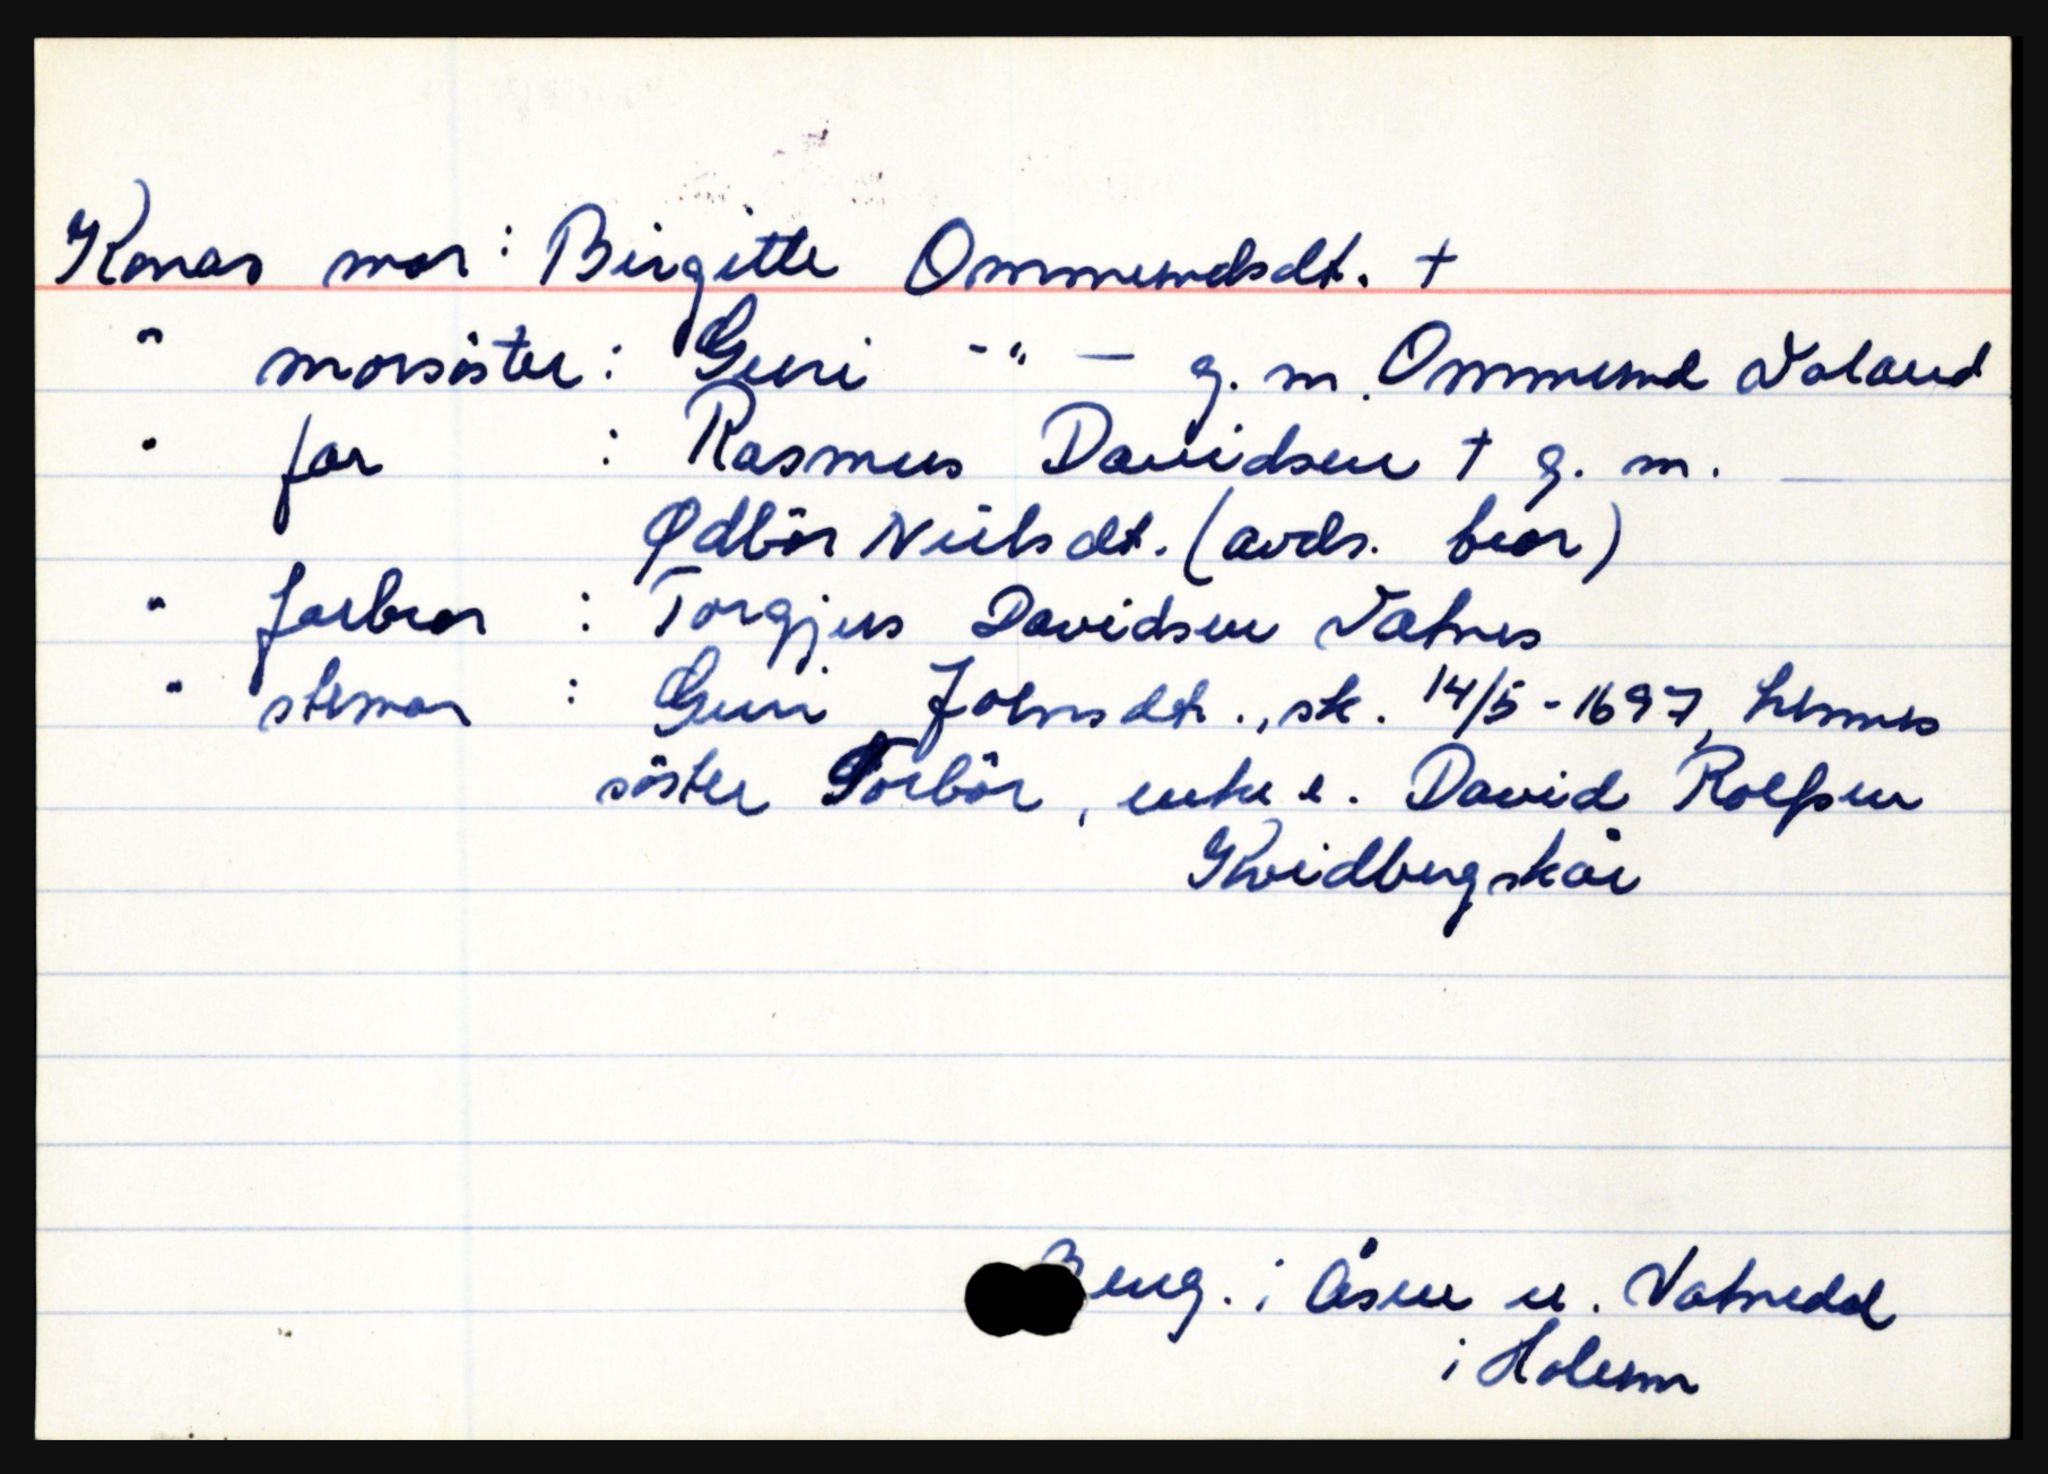 Konas mor : Birgitte Ommundsdt. +
" morsöster : Guri - " - g. m. Ommund Valand
" far : Rasmus Davidsen + g. m. —
Ødbör Nielsdt. (avds. bror)
" farbror : Torgjus Davidsen Vatnes
" stemor : Guri Johnsdt., sk. 14/5 - 1697, hennes
söster Torbör, enke e. David Rolfsen
Kvidbergskår
Beng. i Åsen u. Vatnedal
i Holum